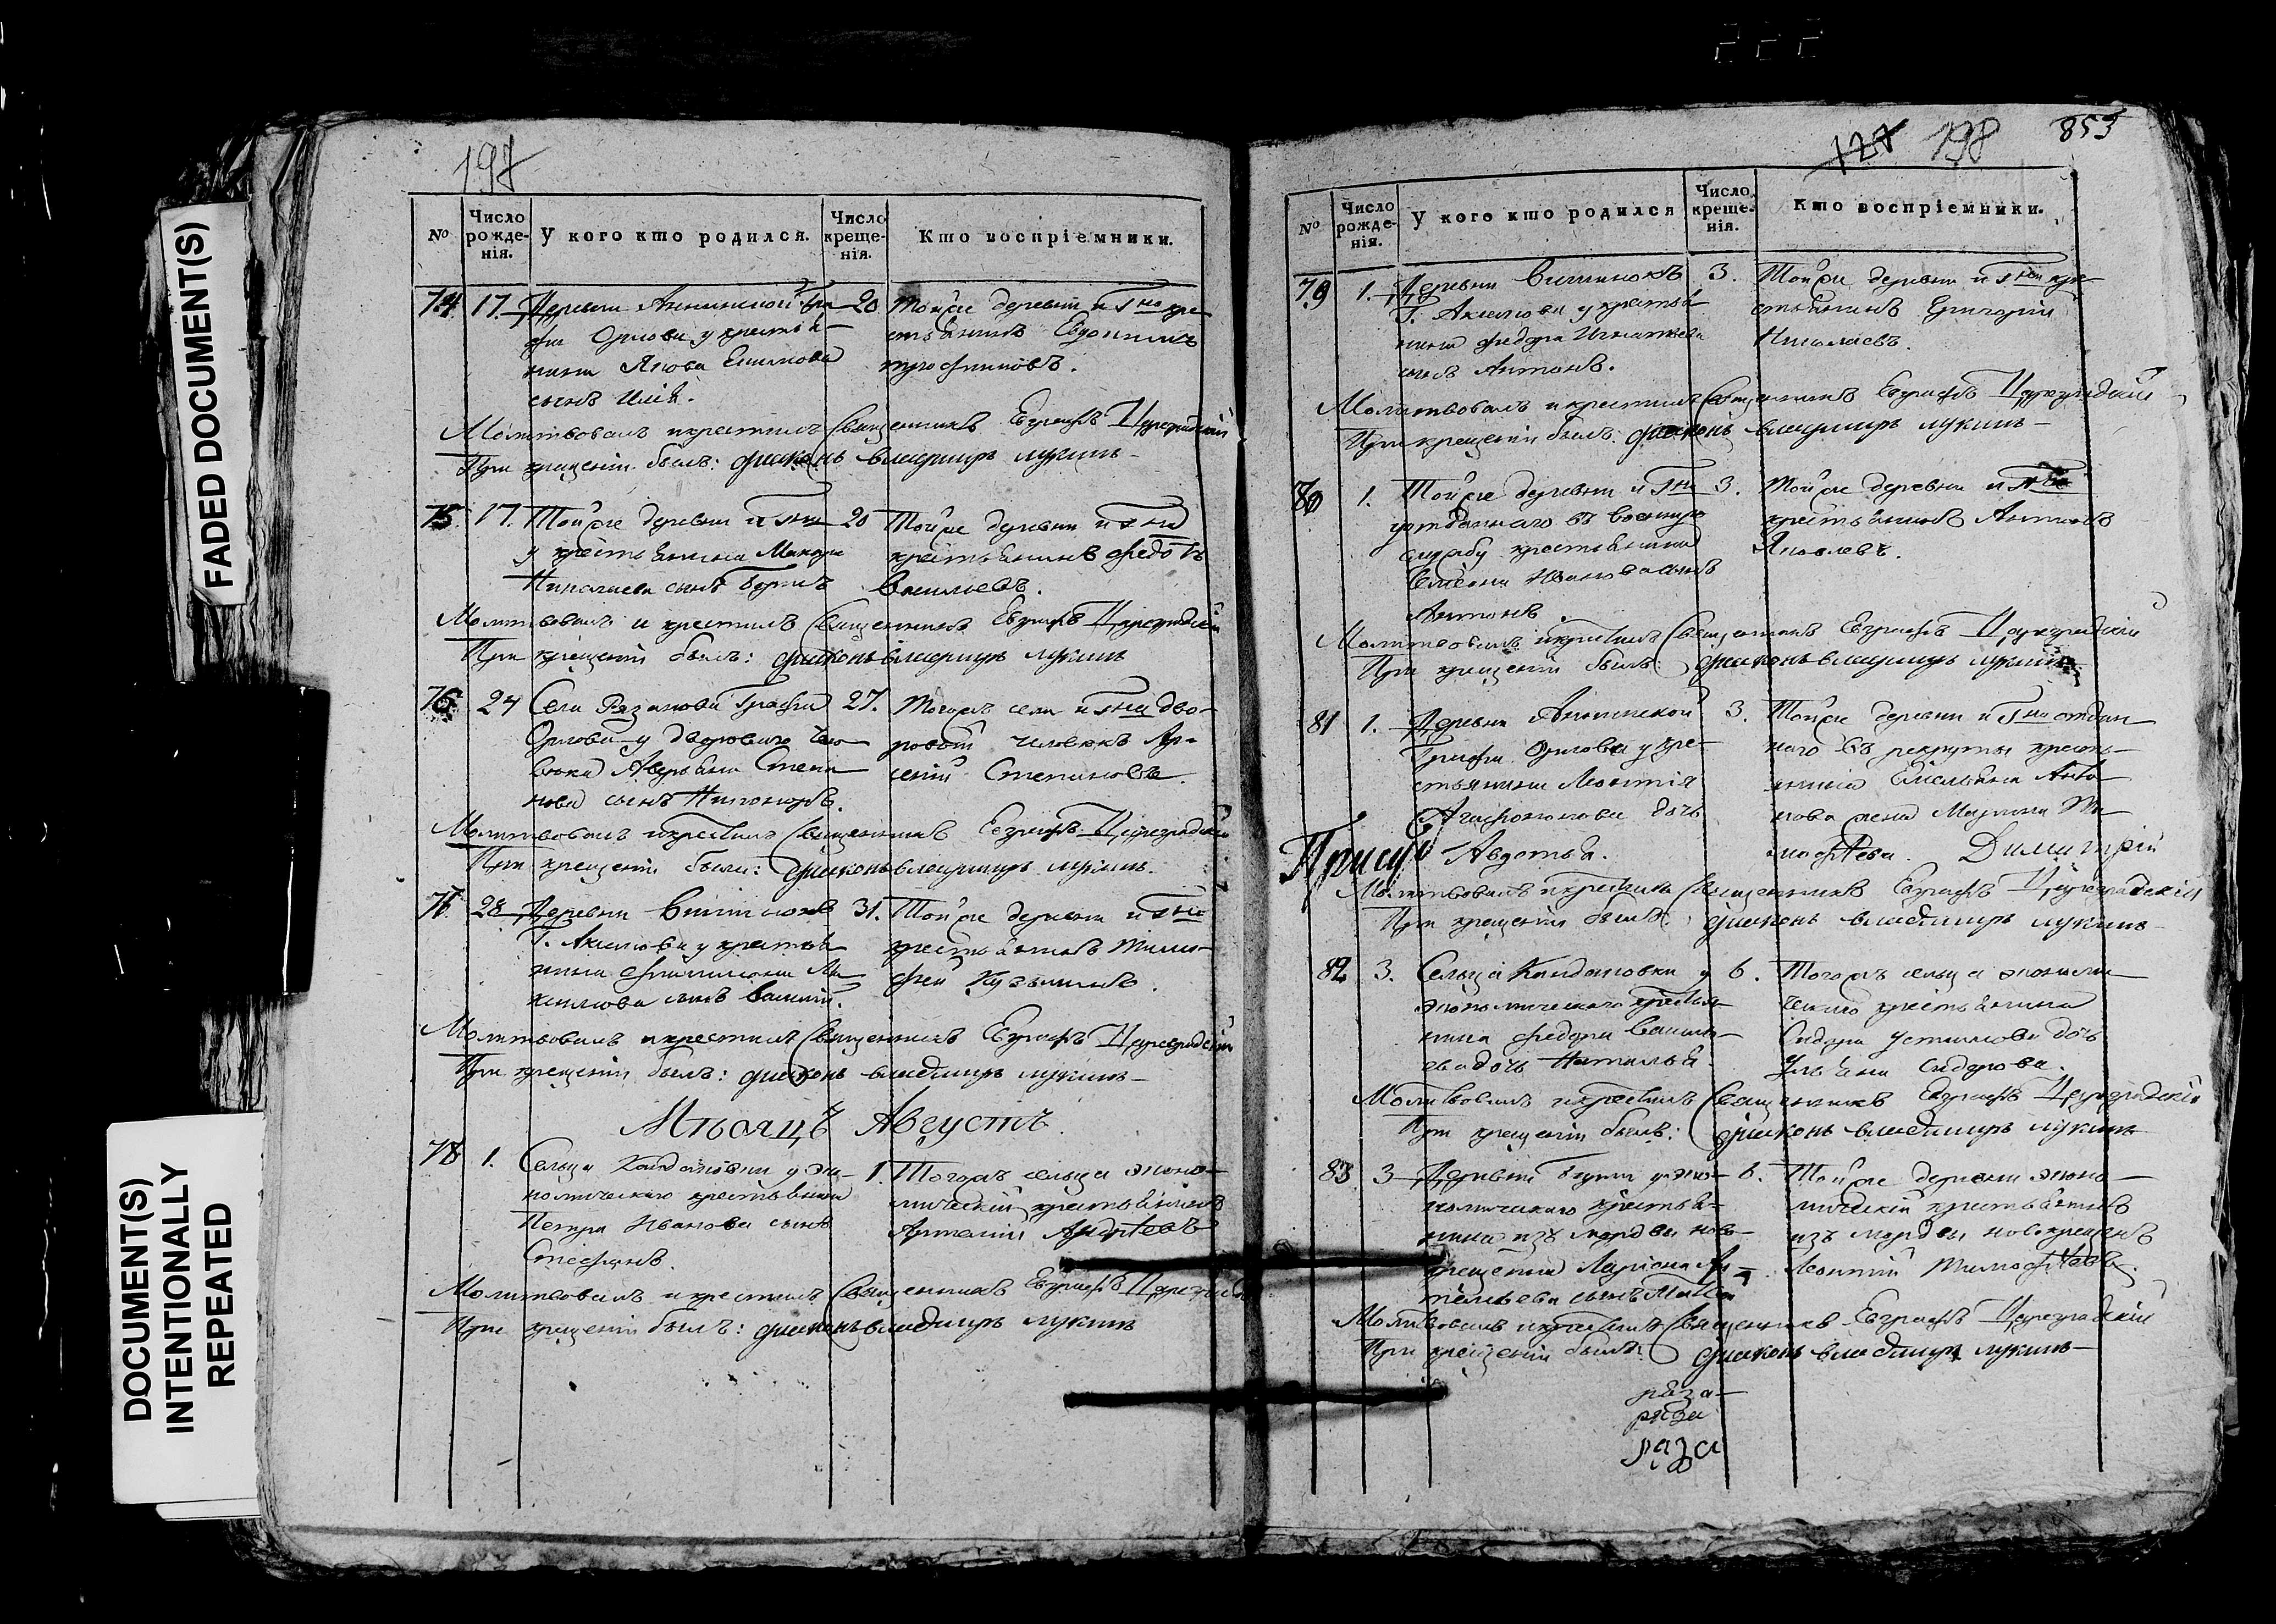 FADED DOCUMENT(S)
DOCUMENT(S)
INTENTIONALLY
REPEATED
197
№
Число рожденія.
У кого кто родился.
Число крещенія.
Кто воспріемники.
74. 17. Деревни Аннинской Гра- 20
фа Орлова у крестья-
нина Якова
сынъ Илія.
Тойже деревни и гна кре-
стьянинъ Евдокимъ
Трофимовъ.
Молитвовалъ и крестилъ Священникъ Евграфъ Цареградскій
При крещеніи былъ: диаконъ владимиръ лукинъ
75. 17. Тойже деревни и гна 20
у крестьянина
Николаева сынъ Борисъ
Тойже деревни и гна
крестьянинъ Федотъ
Васильевъ.
Молитвовалъ и крестилъ Священникъ Евграфъ Цареградскій
При крещеніи былъ: диаконъ владимиръ лукинъ
76. 24 Села Рязанова Графа 27.
Орлова у двороваго чело-
века Аверьяна Степа-
нова сынъ Никаноръ.
Тогожъ села и гна дво-
ровой человекъ Ар-
сеній Степановъ
Молитвовалъ и крестилъ Священникъ Евграфъ Цареградскій
При крещеніи были: диаконъ владимиръ лукинъ.
77. 28 Деревни 31.
Г. Акимова у крестья-
нина
сынъ Василій.
Тойже деревни и гна
крестьянинъ Тимо-
фей Кузьминъ.
Молитвовалъ и крестилъ Священникъ Евграфъ Цареградскій
При крещеніи былъ: диаконъ владимиръ лукинъ
Мѣсяцъ Августъ.
78 1. Сельца Кандаковки у эко- 1.
номическаго крестьянина
Петра Иванова сынъ
Стефанъ.
Тогожъ сельца эконо-
мическій крестьянинъ
Артемій Андреевъ
Молитвовалъ и крестилъ Священникъ Евграфъ
При крещеніи былъ: диаконъ владимиръ лукинъ
127 198 853
№
Число рожденія.
У кого кто родился
Число крещенія.
Кто воспріемники.
79 1. Деревни 3.
Г. Акимова у крестья-
нина Федора Игнатьева
сынъ Антонъ.
Тойже деревни и гна кре-
стьянинъ Григорій
Николаевъ.
Молитвовалъ и крестилъ Священникъ Евграфъ Цареградскій
При крещеніи былъ: диаконъ владимиръ лукинъ
80 1. Тойже деревни и гна 3.
у отданнаго въ военную
службу крестьянина
Семена Иванова сынъ
Антонъ.
Тойже деревни и гна
крестьянинъ Антонъ
Яковлевъ.
Молитвовалъ и крестилъ Священникъ Евграфъ Цареградскій
При крещеніи былъ: диаконъ владимиръ лукинъ
81 1. Деревни Аннинской 3.
Графа Орлова у кре-
стьянина Леонтія
Агафонова дочь
Авдотья.
Тойже деревни и гна отдан-
наго въ рекруты кресть-
янина Емельяна Анто-
нова жена Марина Ти-
мофѣева. Димитрій
Прису
Молитвовалъ и крестилъ Священникъ Евграфъ Цареградскій
При крещеніи былъ: диаконъ владимиръ лукинъ
82 3. Сельца Кандаковки у 6.
экономическаго крестья-
нина Федора Василь-
ева дочь Наталья.
Тогожъ сельца экономи-
ческаго крестьянина
Сидора Устинова дочь
Ульяна Сидорова.
Молитвовалъ и крестилъ Священникъ Евграфъ Цареградскій
При крещеніи былъ: диаконъ владимиръ лукинъ
83 3 Деревни у эко- 6.
номическаго крестья-
нина изъ мордвы ново-
крещена Ларіона Ар-
темьева сынъ
Тойже деревни эконо-
мическій крестьянинъ
изъ мордвы новокрещенъ
Леонтій Тимофѣевъ.
Молитвовалъ и крестилъ Священникъ Евграфъ Цареградскій
При крещеніи былъ: диаконъ владимиръ лукинъ
раза
раза
раза